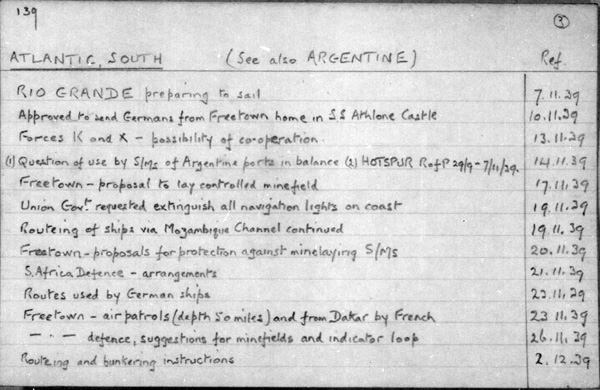 139
③
ATLANTIC, SOUTH (See also ARGENTINE) Ref.
RIO GRANDE preparing to sail 7.11.39
Approved to send Germans from Freetown home in S.S Athlone Castle 10.11.39
Forces K and X – possibility of co-operation. 13.11.39
(1) Question of use by S/Ms of Argentine ports in balance (2) HOTSPUR R of P 29/9 – 7/11/39. 14.11.39
Freetown – proposal to lay controlled minefield 17.11.39
Union Govt. requested extinguish all navigation lights on coast 19.11.39
Routeing of ships via Mozambique Channel continued 19.11.39
Freetown – proposals for protection against minelaying S/Ms 20.11.39
S. Africa Defence – arrangements 21.11.39
Routes used by German ships 22.11.39
Freetown – air patrols (depth 50 miles) and from Dakar by French 23.11.39
— · — defence, suggestions for minefields and indicator loop 26.11.39
Routeing and bunkering instructions 2.12.39